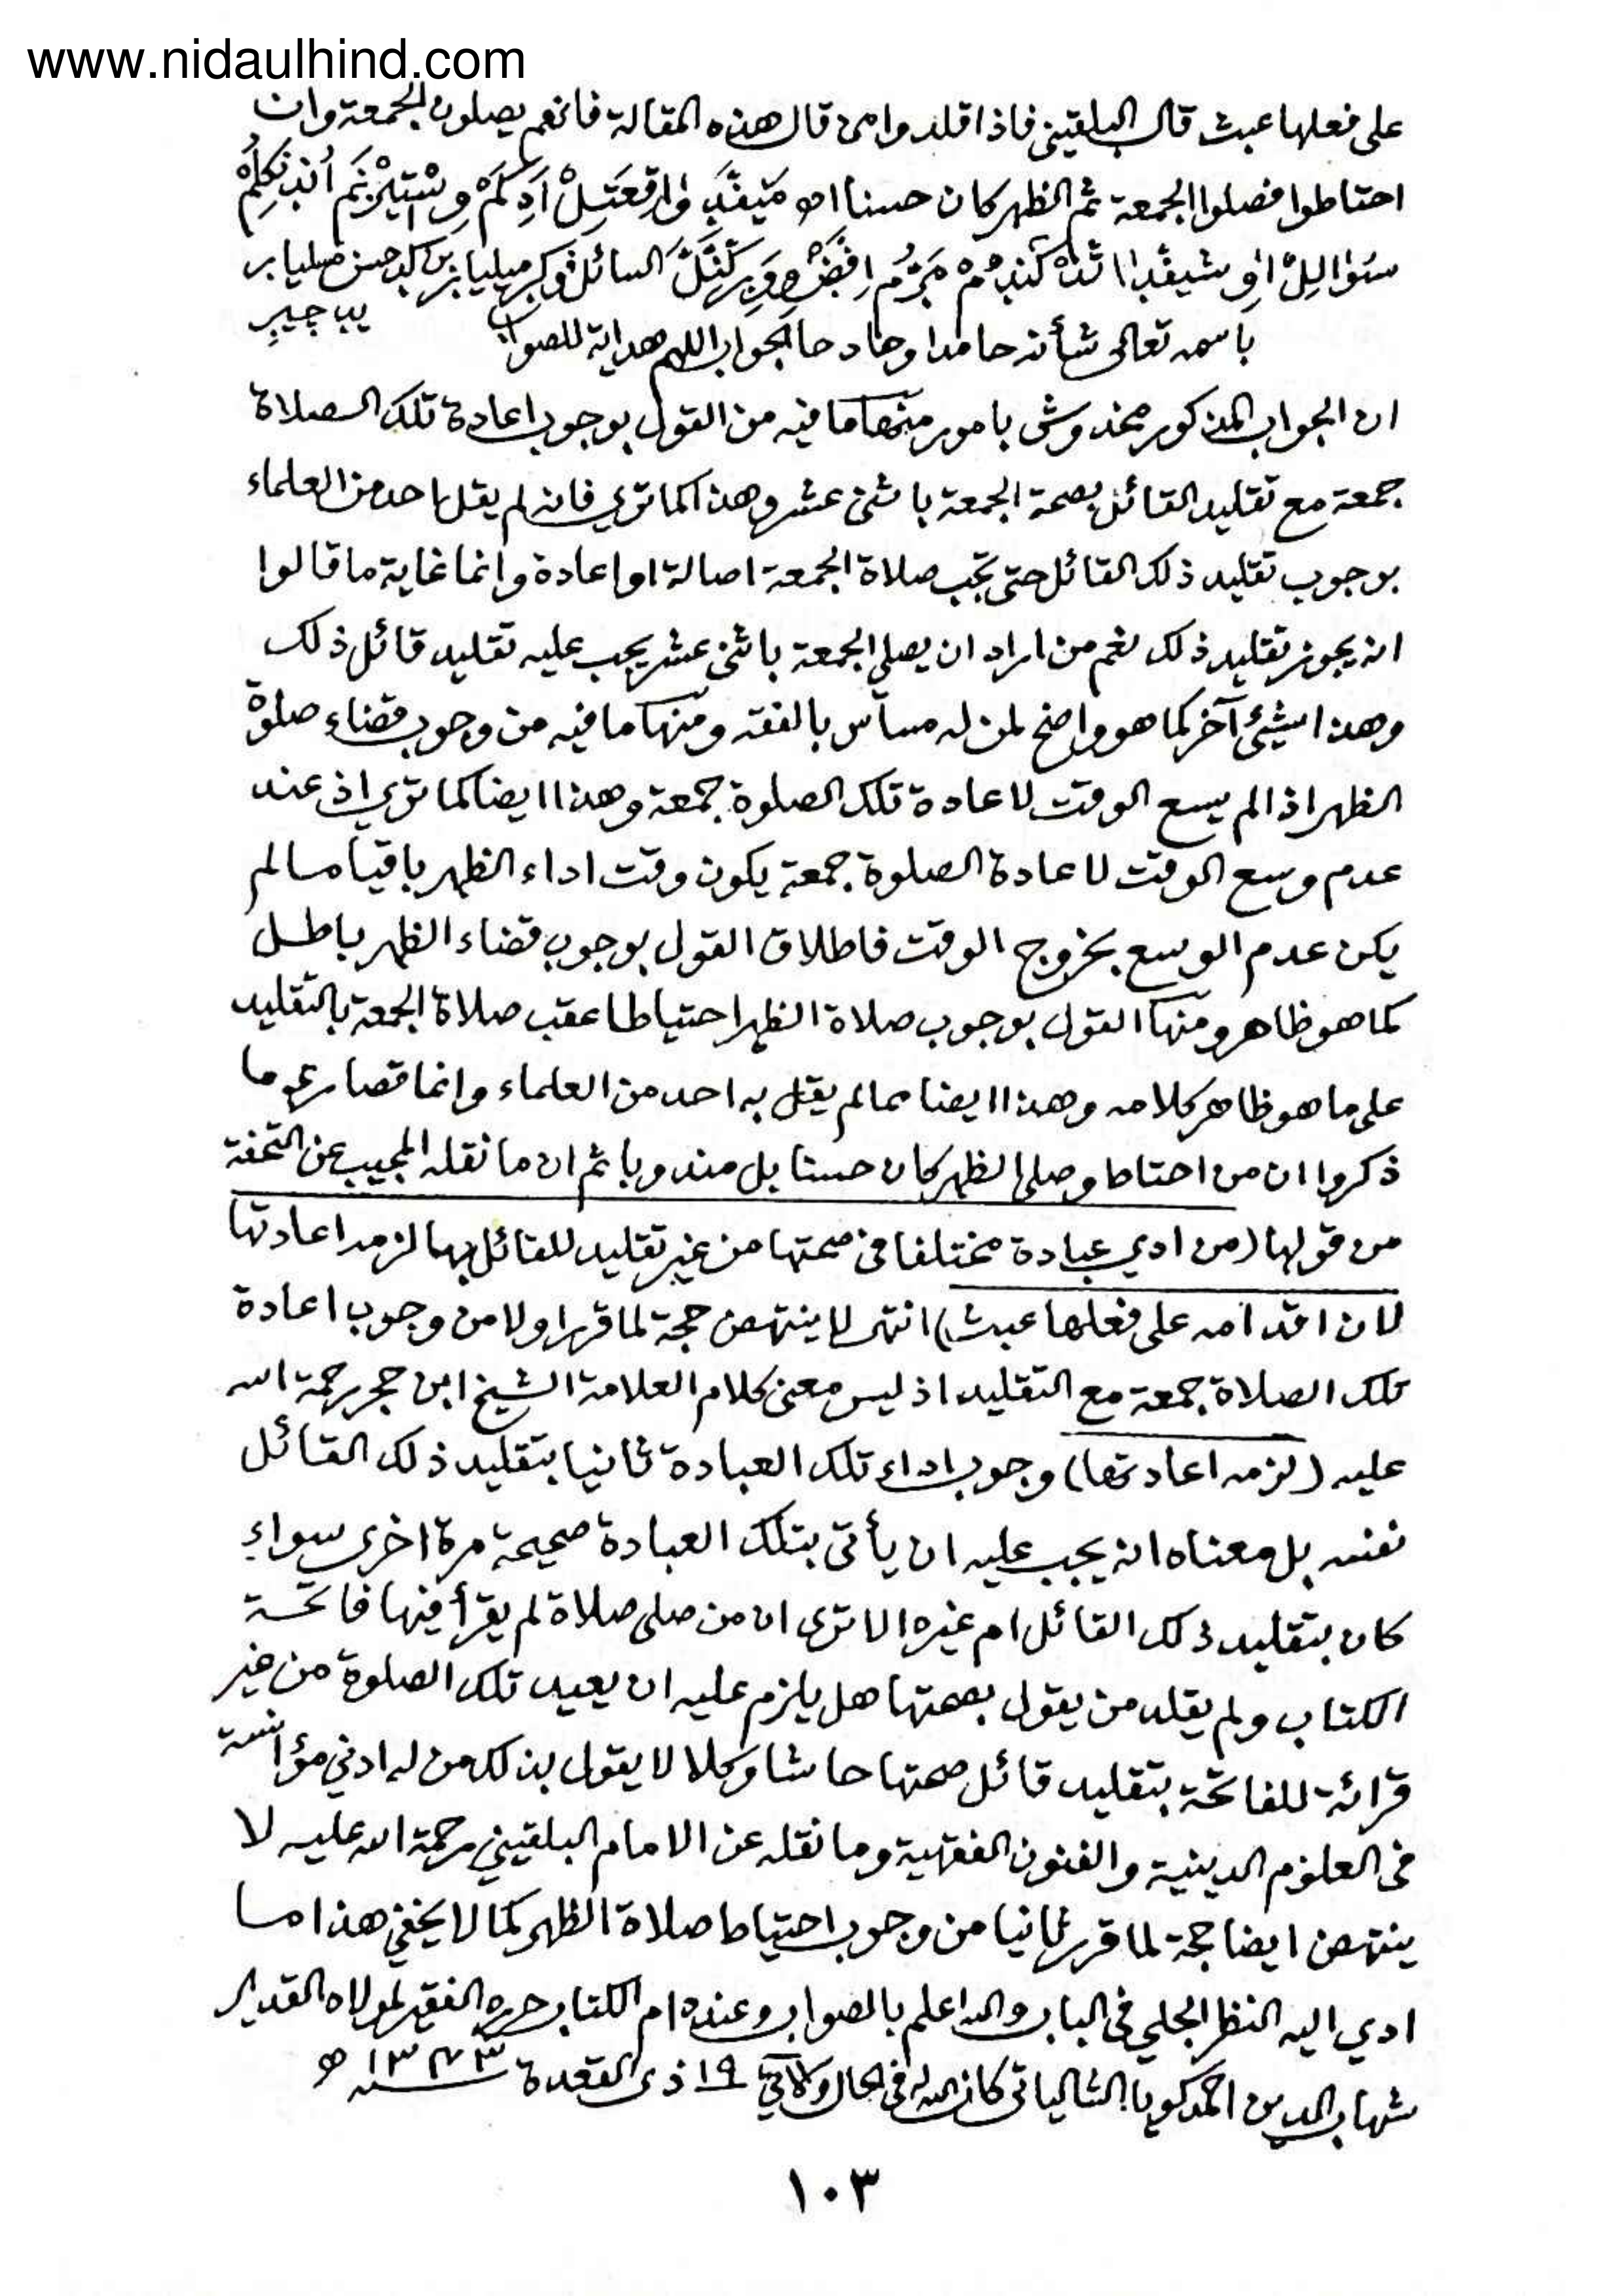 www.nidaulhind.com
على فعلها عبث قال البلقيني فاذا قلدوا من قال هذه المقالة فانهم يصلون الجمعة وان
احتاطوا فصلوا الجمعة ثم الظهر كان حسنا اه
السائل
باسمه تعالى شأنه حامدا وحاد حا الجواب اللهم هداية للصواب
ان الجواب المذكور مخدوش بامور منها ما فيه من القول بوجوب اعادة تلك الصلاة
جمعة مع تقليد القائل بصحة الجمعة باثنى عشر وهذا كما ترى فانه لم يقل احد من العلماء
بوجوب تقليد ذلك القائل حتى تجب صلاة الجمعة اصالة او اعادة وانما غاية ما قالوا
انه يجوز تقليد ذلك نعم من اراد ان يصلي الجمعة باثنى عشر يجب عليه تقليد قائل ذلك
وهذا شيئ آخر كما هو واضح لمن له مساس بالفقه ومنها ما فيه من وجوب قضاء صلوة
الظهر اذا لم يسع الوقت لاعادة تلك الصلوة جمعة وهذا ايضا كما ترى اذ عند
عدم وسع الوقت لاعادة الصلوة جمعة يكون وقت اداء الظهر باقيا ما لم
يكن عدم الوسع بخروج الوقت فاطلاق القول بوجوب قضاء الظهر باطل
كما هو ظاهر ومنها القول بوجوب صلاة الظهر احتياطا عقب صلاة الجمعة بالتقليد
على ما هو ظاهر كلامه وهذا ايضا مما لم يقل به احد من العلماء وانما قصارى ما
ذكروا ان من احتاط وصلى الظهر كان حسنا بل مندوبا ثم ان ما نقله المجيب عن التحفة
من قولها (من ادي عبادة مختلفا في صحتها من غير تقليد للقائل بها لزمه اعادتها
لان اقدامه على فعلها عبث) انتهى لا ينتهض حجة لما قرر اولا من وجوب اعادة
تلك الصلاة جمعة مع التقليد اذ ليس معنى كلام العلامة الشيخ ابن حجر رحمة الله
عليه (لزمه اعادتها) وجوب اداء تلك العبادة ثانيا بتقليد ذلك القائل
نفسه بل معناه انه يجب عليه ان يأتى بتلك العبادة صحيحة مرة اخرى سواء
كان بتقليد ذلك القائل ام غيره الا ترى ان من صلى صلاة لم يقرأ فيها فاتحة
الكتاب ولم يقلد من يقول بصحتها هل يلزم عليه ان يعيد تلك الصلوة من غير
قرائة للفاتحة بتقليد قائل صحتها حاشا وكلا لا يقول بذلك من له ادنى مؤانسة
فى العلوم الدينية والفنون الفقهية وما نقله عن الامام البلقيني رحمة الله عليه لا
ينتهض ايضا حجة لما قرر ثانيا من وجوب احتياط صلاة الظهر كما لا يخفى هذا ما
ادي اليه النظر الجلي فى الباب والله اعلم بالصواب وعنده ام الكتاب حرره الفقير لمولاه القدير
شهاب الدين احمد كويا الشالياتى كان الله له فى الحال والآتي ١٩ ذى القعدة سنة ١٣٧٣ ه
١٠٣